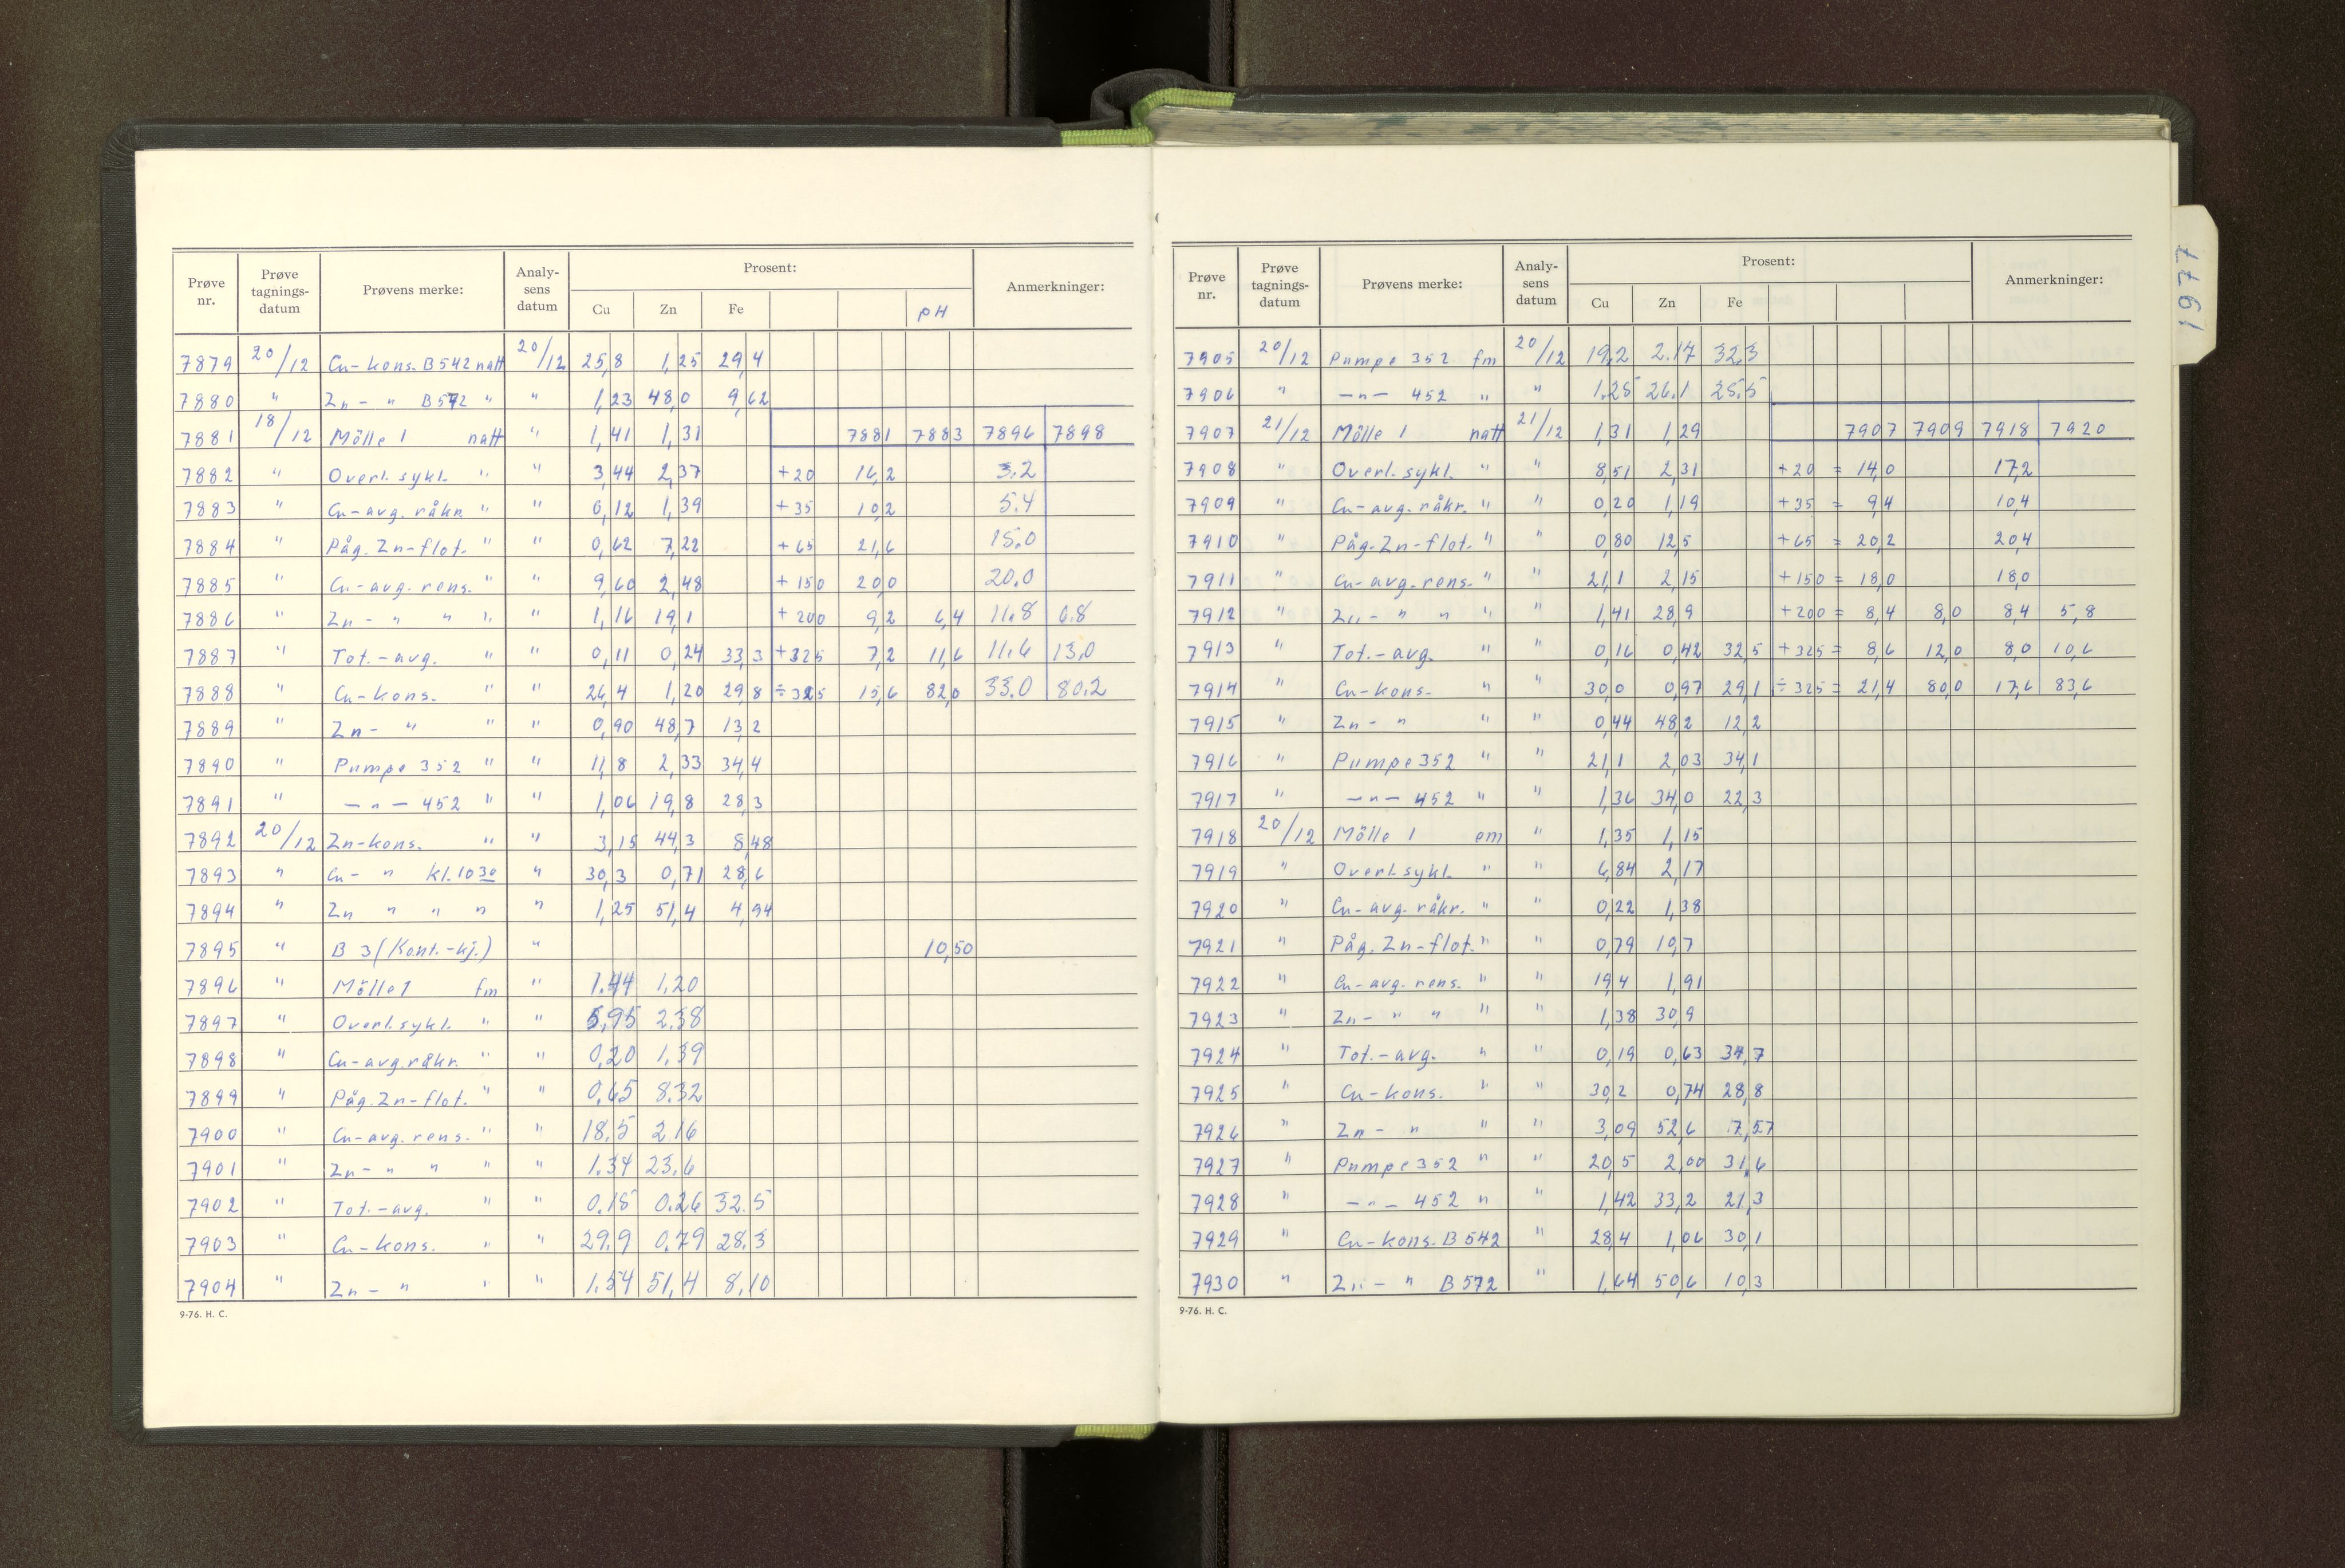 Prøve nr. Prøve tagnings-datum Prøvens merke: Analy-sens datum Prosent: Anmerkninger:
Cu Zn Fe pH
7879 20/12 Cu-kons. B542 natt 20/12 25,8 1,25 29,4
7880 " Zn- " B572 " " 1,23 48,0 9,62
7881 18/12 Mölle 1 natt " 1,41 1,31 7881 7883 7896 7898
7882 " Overl. sykl. " " 3,44 2,37 +20 16,2 3.2
7883 " Cu-avg. råkr. " " 0,12 1,39 +35 10,2 5.4
7884 " Påg. Zn-flot. " " 0,62 7,22 +65 21,6 15.0
7885 " Cu-avg. rens. " " 9,60 2,48 +150 20,0 20.0
7886 " Zn- " " " " 1,16 19,1 +200 9,2 6,4 11.8 6.8
7887 " Tot.-avg. " " 0,11 0,24 33,3 +325 7,2 11,6 11.6 13,0
7888 " Cu-kons. " " 26,4 1,20 29,8 ÷325 15,6 82,0 33.0 80.2
7889 " Zn- " " " 0,90 48,7 13,2
7890 " Pumpe 352 " " 11,8 2,33 34,4
7891 " —"— 452 " " 1,06 19,8 28,3
7892 20/12 Zn-kons. " " 3,15 44,3 8,48
7893 " Cu- " kl. 10 30 " 30,3 0,71 28,6
7894 " Zn " " " " 1,25 51,4 4,94
7895 " B 3 (Kont.-kj.) " 10,50
7896 " Mölle 1 fm " 1.44 1,20
7897 " Overl. sykl. " " 5,95 2.38
7898 " Cu-avg. råkr. " " 0,20 1,39
7899 " Påg. Zn-flot. " " 0,65 8.32
7900 " Cu-avg. rens. " " 18,5 2,16
7901 " Zn- " " " " 1.34 23,6
7902 " Tot.-avg. " " 0.15 0.26 32.5
7903 " Cu-kons. " " 29.9 0,79 28.3
7904 " Zn- " " " 1.54 51,4 8,10
9-76. H. C.
Prøve nr. Prøve tagnings-datum Prøvens merke: Analy-sens datum Prosent: Anmerkninger:
Cu Zn Fe
7905 20/12 Pumpe 352 fm 20/12 19,2 2.17 32,3
7906 " —"— 452 " " 1.25 26.1 25.5
7907 21/12 Mölle 1 natt 21/12 1,31 1,29 7907 7909 7918 7920
7908 " Overl. sykl. " " 8,51 2,31 +20 = 14,0 17,2
7909 " Cu-avg. råkr. " " 0,20 1,19 +35 = 9,4 10,4
7910 " Påg. Zn-flot. " " 0,80 12,5 +65 = 20,2 20,4
7911 " Cu-avg. rens. " " 21,1 2,15 +150 = 18,0 18,0
7912 " Zn- " " " " 1,41 28,9 +200 = 8,4 8,0 8,4 5,8
7913 " Tot.-avg. " " 0,16 0,42 32,5 +325 = 8,6 12,0 8,0 10,6
7914 " Cu-kons. " " 30,0 0,97 29,1 ÷325 = 21,4 80,0 17,6 83,6
7915 " Zn- " " " 0,44 48,2 12,2
7916 " Pumpe 352 " " 21,1 2,03 34,1
7917 " —"— 452 " " 1,36 34,0 22,3
7918 20/12 Mölle 1 em " 1,35 1,15
7919 " Overl. sykl. " " 6,84 2,17
7920 " Cu-avg. råkr. " " 0,22 1,38
7921 " Påg. Zn-flot. " " 0,79 10,7
7922 " Cu-avg. rens. " " 19,4 1,91
7923 " Zn- " " " " 1,38 30,9
7924 " Tot.-avg. " " 0,19 0,63 34,7
7925 " Cu-kons. " " 30,2 0,74 28,8
7926 " Zn- " " " 3,09 52,6 7,57
7927 " Pumpe 352 " " 20,5 2,00 31,6
7928 " —"— 452 " " 1,42 33,2 21,3
7929 " Cu-kons. B 542 " 28,4 1,06 30,1
7930 " Zn- " B 572 " 1,64 50,6 10,3
9-76. H. C.
1977